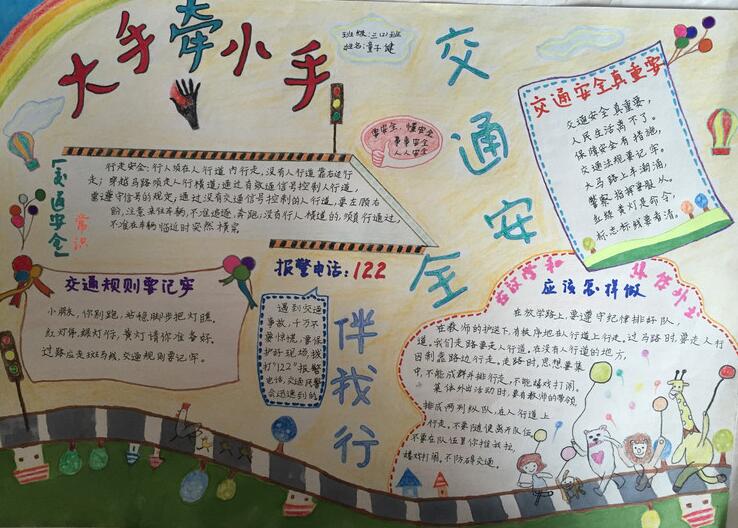 大手牵小手
班级:三(2)班
姓名:童子健
交通安全
伴我行
要安全,懂安全
事事安全
人人安全
交通安全真重要
交通安全真重要,
人民生活离不了。
保障安全有措施,
交通法规要记牢。
大马路上车潮涌,
警察指挥要服从。
红绿黄灯是命令,
标志标线要看清。
「交通安全」
常识
行走安全:行人须在人行道内行走,没有人行道靠右边行
走;穿越马路须走人行横道;通过有交通信号控制人行道,
需遵守信号的规定;通过没有交通信号控制的人行道,要左顾右
盼,注意来往车辆,不准追逐、奔跑;没有人行横道的,须直行通过,
不准在车辆临近时突然横穿
交通规则要记牢
小朋友,你别跑,站稳脚步把灯瞧。
红灯停,绿灯行,黄灯请你准备好。
过路应走斑马线,交通规则要记牢。
报警电话:122
遇到交通
事故,千万不
要惊慌,要保
护好现场,拨
打"122"报警
电话,交通民警
会迅速到的
在放学和集体外出
应该怎样做
在放学路上,要遵守纪律排好队,
在教师的护送下,有秩序地在人行道上行走。过马路时,要走人行
道。我们走路要走人行道。在没有人行道的地方,
应到靠路边行走。走路时,思想要集
中,不能成群并排行走,不能嬉戏打闹。
集体外出活动时,要有教师的带领,
排成两列纵队,在人行道上
行走,不要随便离开队伍,
不要在队伍里你推我拉,
嬉戏打闹,不防碍交通。